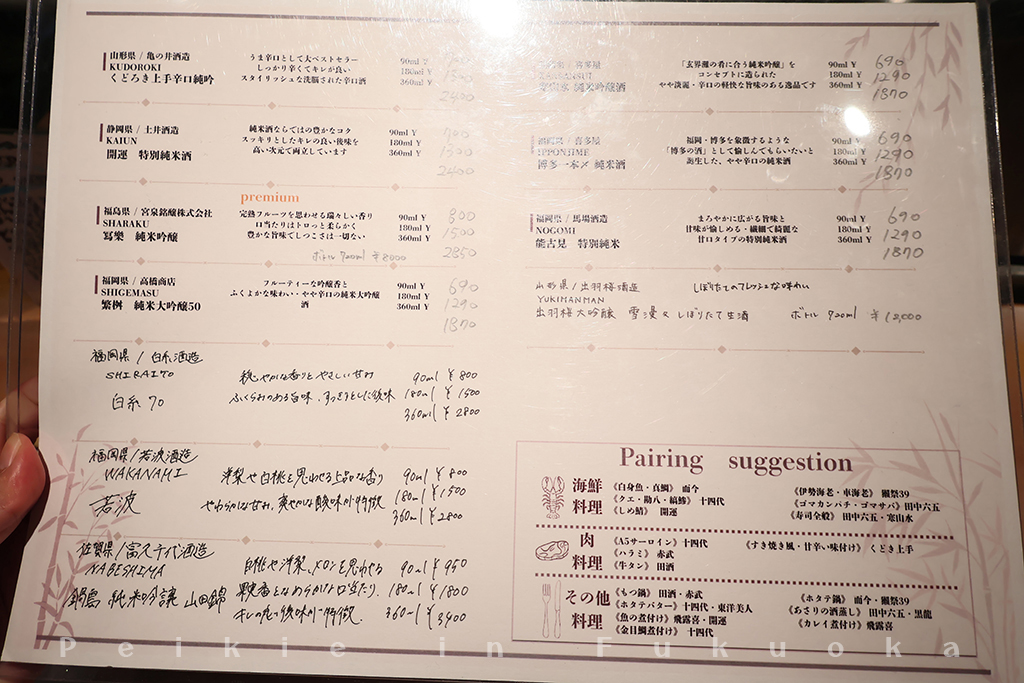 山形県 / 亀の井酒造
KUDOROKI
くどろき上手辛口純吟
うま辛口として大ベストセラー
しっかり辛くてキレが良い
スタイリッシュな洗脳された辛口酒
90ml ¥
180ml ¥
360ml ¥
2400
静岡県 / 土井酒造
KAIUN
開運 特別純米酒
純米酒ならではの豊かなコク
スッキリとしたキレの良い後味を
高い次元で両立しています
90ml ¥ 700
180ml ¥ 1300
360ml ¥ 2400
premium
福島県 / 宮泉銘醸株式会社
SHARAKU
寫樂 純米吟醸
完熟フルーツを思わせる瑞々しい香り
口当たりはトロっと柔らかく
豊かな旨味でしつこさは一切ない
90ml ¥ 800
180ml ¥ 1500
360ml ¥ 2850
ボトル 720ml ¥8000
福岡県 / 高橋商店
SHIGEMASU
繁桝 純米大吟醸50
フルーティーな吟醸香と
ふくよかな味わい・やや辛口の純米大吟醸
酒
90ml ¥ 690
180ml ¥ 1290
360ml ¥ 1870
福岡県 / 白糸酒造
SHIRAITO
白糸 70
穏やかな香りとやさしい甘み
ふくらみのある旨味、すっきりとした後味
90ml ¥ 800
180ml ¥ 1500
360ml ¥ 2800
福岡県/若波酒造
WAKANAMI
若波
洋梨や白桃を思わせる上品な香り
やわらかな甘み、爽やかな酸味が特徴
90ml ¥ 800
180ml ¥ 1500
360ml ¥ 2800
佐賀県/富久千代酒造
NABESHIMA
鍋島 純米吟醸 山田錦
白桃や洋梨、メロンを思わせる
果実香となめらかな口当たり
キレの良い後味が特徴
90ml ¥ 950
180ml ¥ 1800
360ml ¥ 3400
喜多屋
純米吟醸酒
「玄界灘の肴に合う純米吟醸」を
コンセプトに造られた
やや淡麗・辛口の軽快な旨味のある逸品です
90ml ¥ 690
180ml ¥ 1290
360ml ¥ 1870
福岡県 / 喜多屋
IPPONJIME
博多一本〆 純米酒
福岡・博多を象徴するような
「博多の酒」として愉しんでもらいたいと
誕生した、やや辛口の純米酒
90ml ¥ 690
180ml ¥ 1290
360ml ¥ 1870
福岡県 / 馬場酒造
NOGOMI
能古見 特別純米
まろやかに広がる旨味と
甘味が愉しめる・繊細で綺麗な
甘口タイプの特別純米酒
90ml ¥ 690
180ml ¥ 1290
360ml ¥ 1870
山形県/出羽桜酒造
YUKIMANMAN
出羽桜大吟醸 雪漫々 しぼりたて生酒
しぼりたてのフレッシュな味わい
ボトル 720ml ¥ 12,000
Pairing suggestion
海鮮
料理
《白身魚・真鯛》 而今
《クエ・助八・縞鯵》 十四代
《しめ鯖》 開運
《伊勢海老・車海老》 獺祭39
《ゴマカンパチ・ゴマサバ》田中六五
《寿司全般》 田中六五・寒山水
肉
料理
《A5サーロイン》十四代
《ハラミ》 赤武
《牛タン》 田酒
《すき焼き風・甘辛い味付け》 くどき上手
その他
料理
《もつ鍋》 田酒・赤武
《ホタテバター》十四代・東洋美人
《魚の煮付け》 飛露喜・開運
《金目鯛煮付け》 十四代
《ホタテ鍋》 而今・獺祭39
《あさりの酒蒸し》 田中六五・黒龍
《カレイ煮付け》 飛露喜
Peikie in Fukuoka